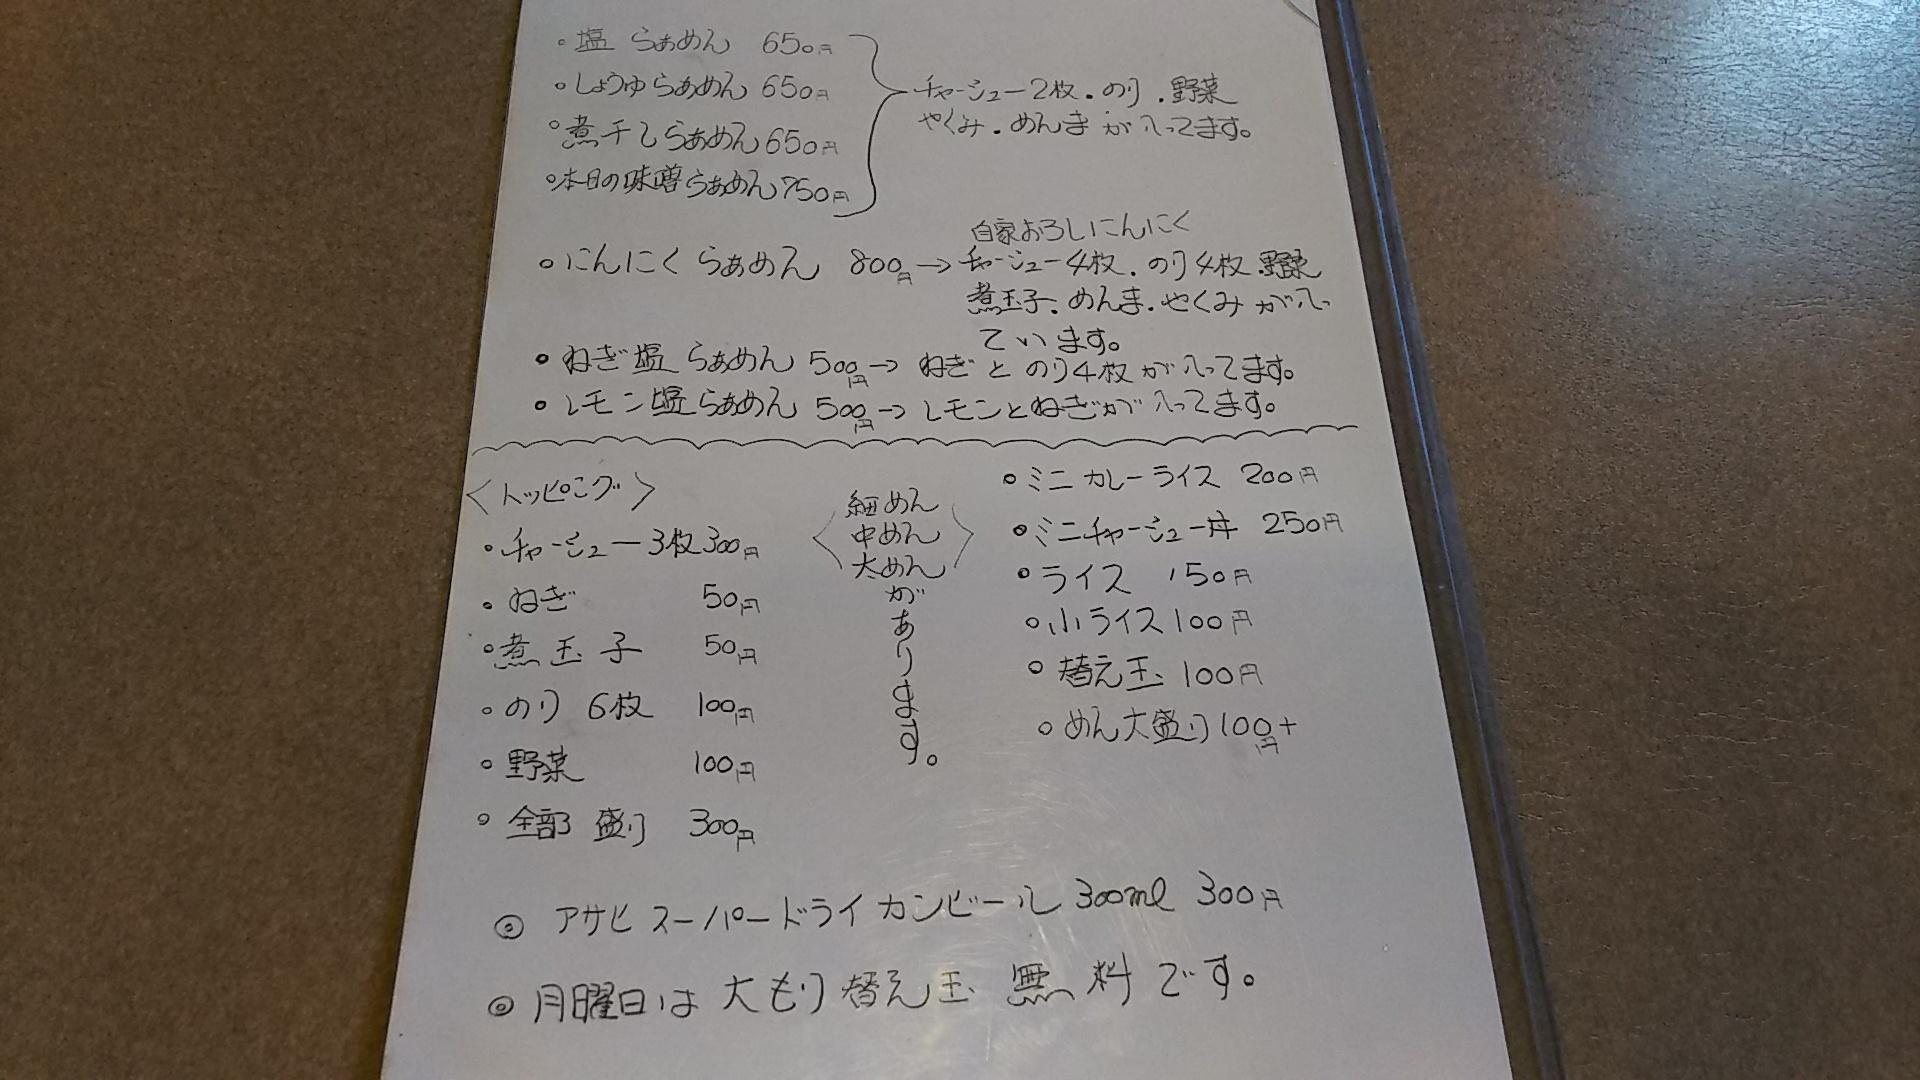 。塩 らぁめん 650円
。しょうゆらぁめん 650円
。煮干しらぁめん 650円
。本日の味噌らぁめん 750円
チャーシュー2枚.のり.野菜
やくみ.めんまが入ってます。
。にんにく らぁめん 800円→
自家おろしにんにく
チャーシュー4枚.のり4枚.野菜
煮玉子.めんま.やくみ が入っ
ています。
・ねぎ塩 らぁめん 500円→ ねぎと のり4枚が入ってます。
・レモン塩らぁめん 500円→ レモンとねぎが入ってます。
〈トッピング〉
・チャーシュー3枚300円
・ねぎ 50円
。煮玉子 50円
。のり 6枚 100円
。野菜 100円
。全部盛り 300円
〈細めん
中めん
太めん〉
があります。
。ミニカレーライス 200円
。ミニチャーシュー丼 250円
。ライス 150円
。小ライス 100円
。替え玉 100円
。めん大盛り 100円+
◎ アサヒ スーパードライ カンビール 300ml 300円
◎ 月曜日は 大もり 替え玉 無料です。